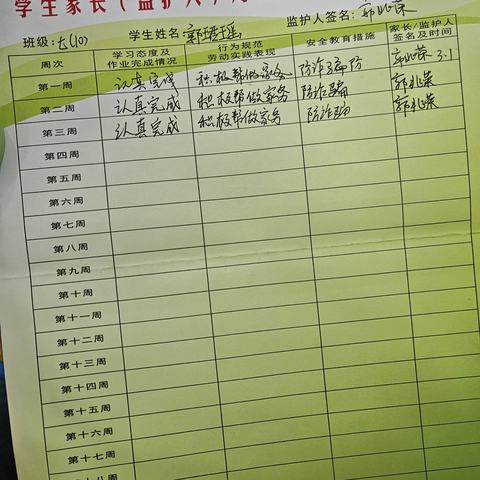 学生家长(监护人)
班级:七(10) 学生姓名: 监护人签名:郭兆荣
周次 学习态度及作业完成情况 行为规范劳动实践表现 安全教育措施 家长/监护人签名及时间
第一周 认真完成 积极帮做家务 防诈骗 郭兆荣 3.1
第二周 认真完成 积极帮做家务 防诈骗 郭兆荣
第三周 认真完成 积极帮做家务 防诈骗 郭兆荣
第四周
第五周
第六周
第七周
第八周
第九周
第十周
第十一周
第十二周
第十三周
第十四周
第十五周
第十六周
第十七周
第十八周